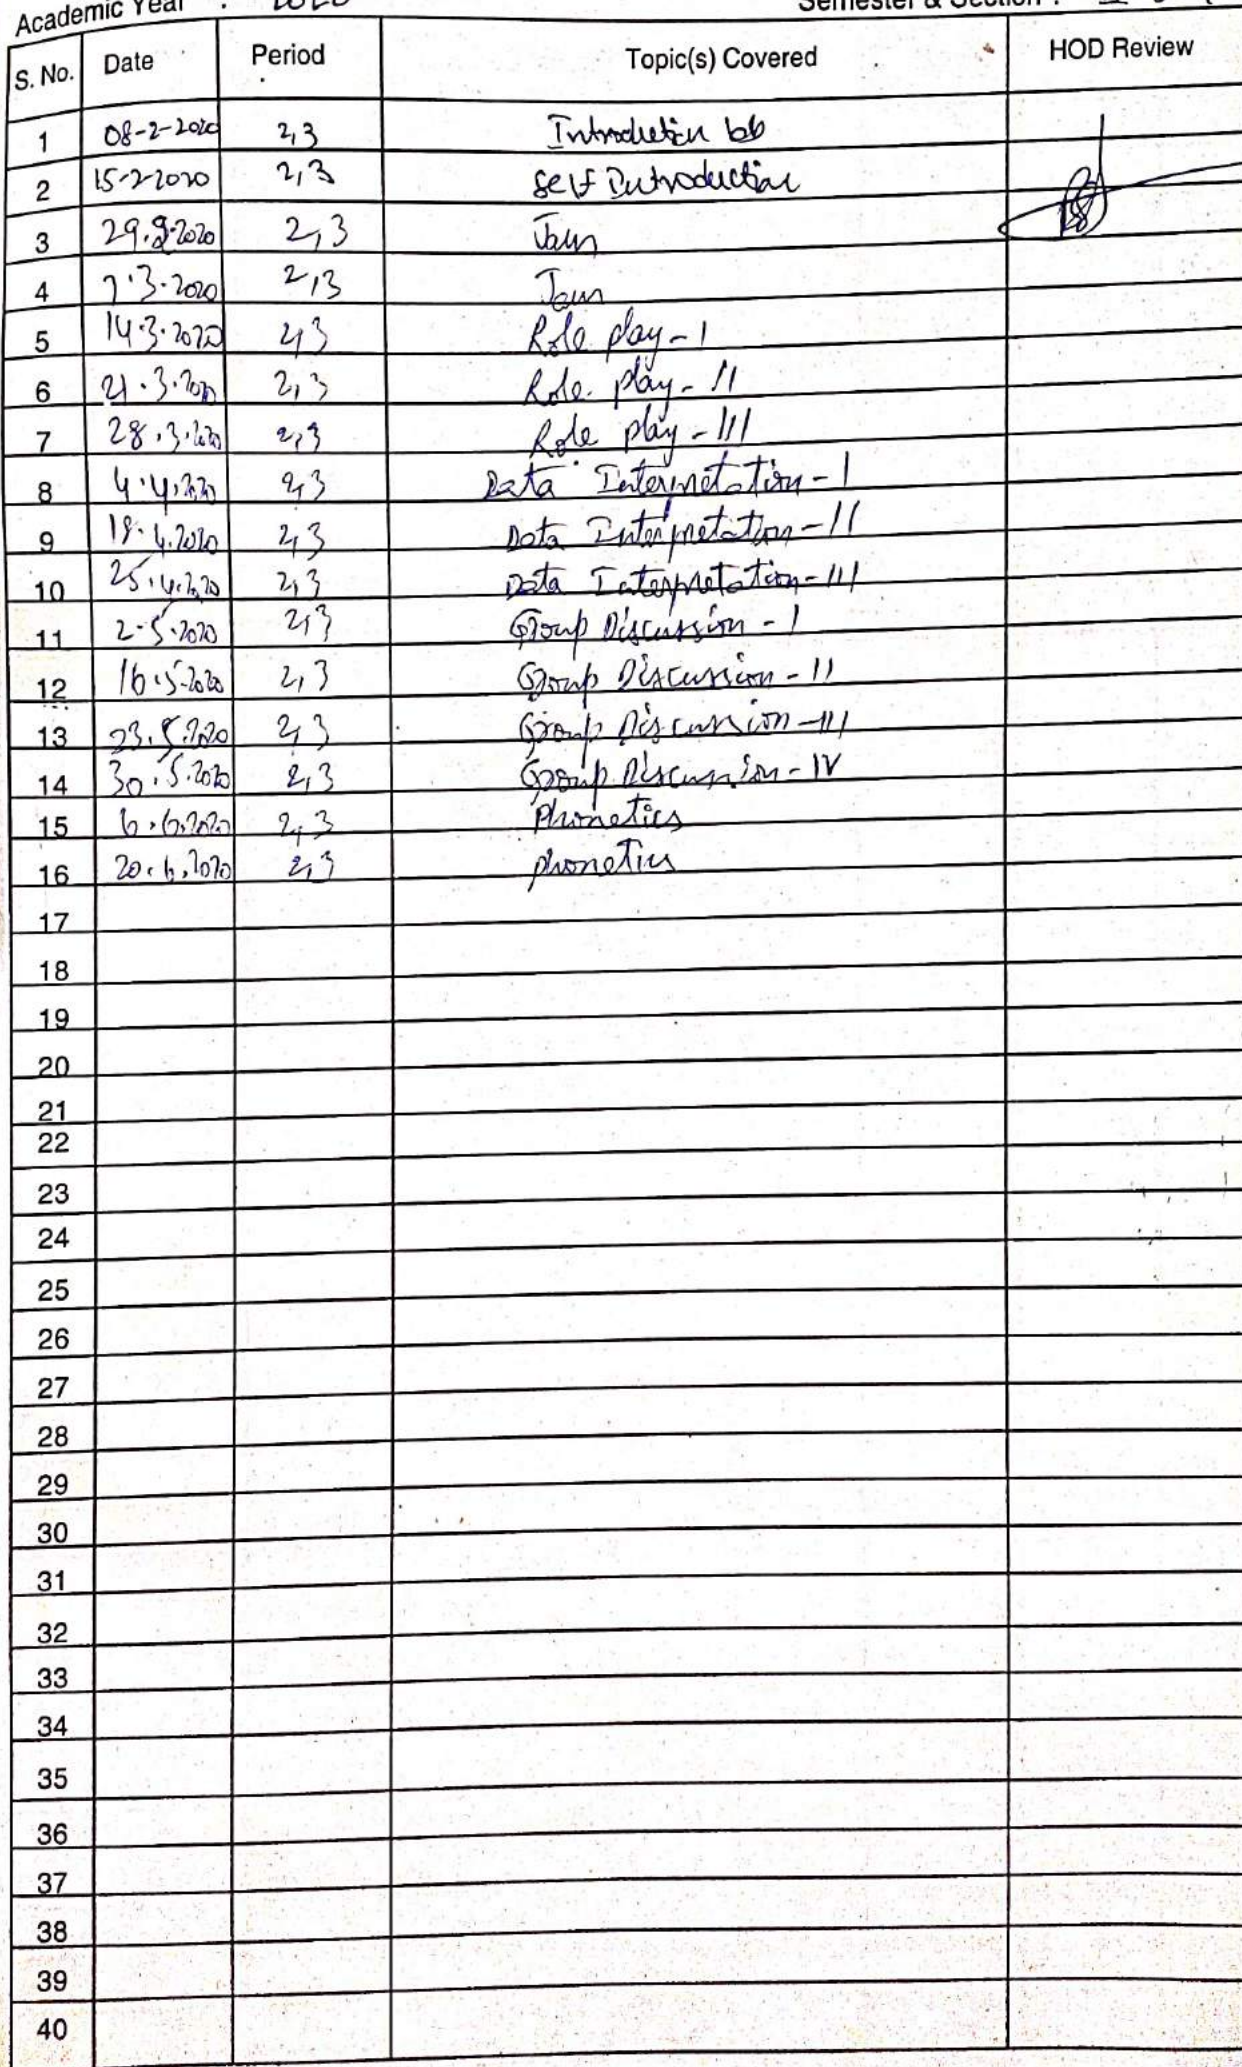 Academic Year : 2020 Semester & Section :
S. No. Date Period Topic(s) Covered HOD Review
1 08-2-2020 2,3 Introduction
2 15-2-2020 2,3 Self Introduction
3 29.2.2020 2,3 Jam
4 7.3.2020 2,3 Jam
5 14.3.2020 2,3 Role play - I
6 21.3.2020 2,3 Role play - II
7 28.3.2020 2,3 Role play - III
8 4.4.2020 2,3 Data Interpretation - I
9 18.4.2020 2,3 Data Interpretation - II
10 25.4.2020 2,3 Data Interpretation - III
11 2-5-2020 2,3 Group Discussion - I
12 16.5.2020 2,3 Group Discussion - II
13 23.5.2020 2,3 Group Discussion - III
14 30.5.2020 2,3 Group Discussion - IV
15 6.6.2020 2,3 Phonetics
16 20.6.2020 2,3 phonetics
17
18
19
20
21
22
23
24
25
26
27
28
29
30
31
32
33
34
35
36
37
38
39
40